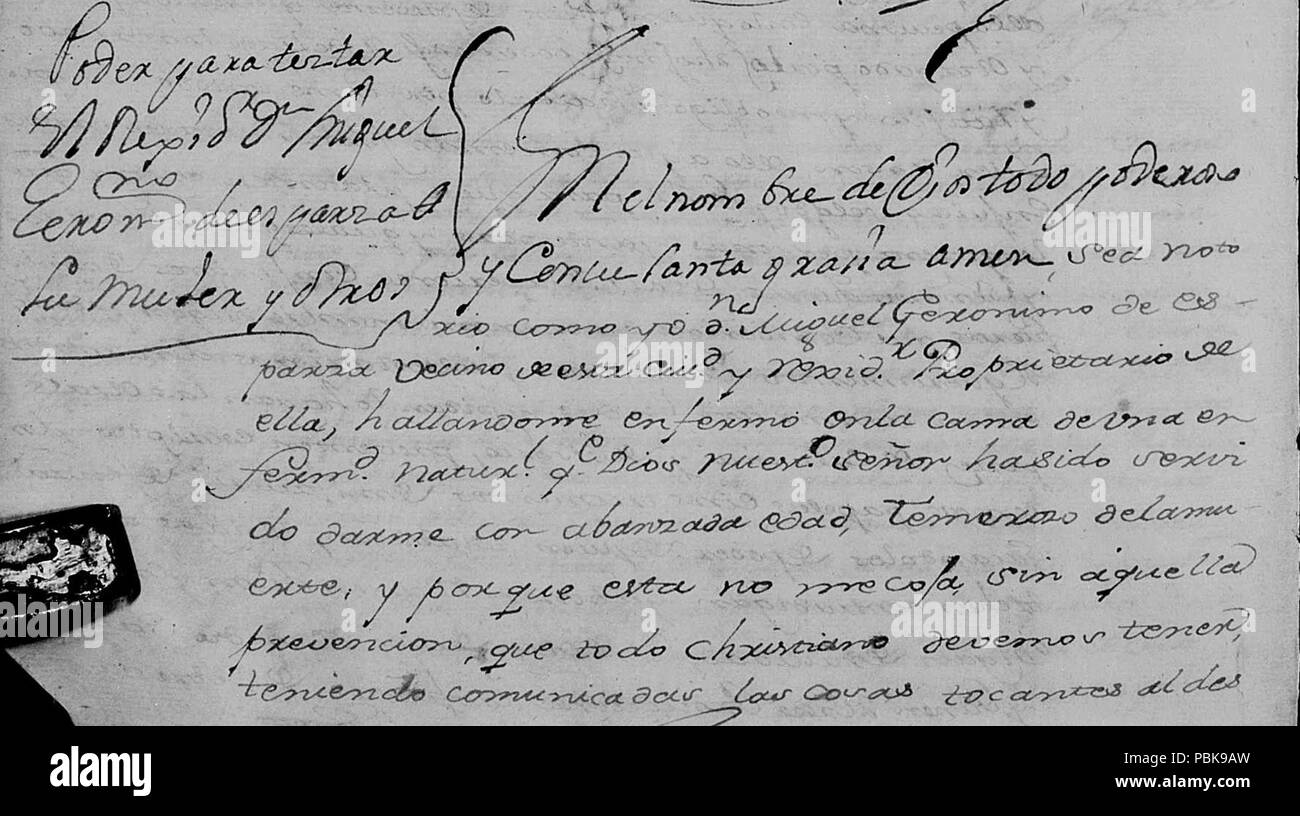 Poder para testar
El Rexidr Dn Miguel
Geronmo de esparza a
su Muger y otros
En el nombre de Dios todo poderoso
y Con su santa grasia amen, sea noto
rio como yo dn. Miguel Geronimo de es-
parza vecino de esta Ciud. y Rexidr. Proprietario de
ella, hallandome enfermo en la cama de una en
fermd. naturl. qe. Dios nuesto. señor ha sido servi
do darme con abanzada edad, temeroso de la mu-
erte, y porque esta no me cosa, sin aquella
prevencion, que todo Christiano devemos tener,
teniendo comunicadas las cosas tocantes al des
alamy
Image ID: PBK9AW
www.alamy.com